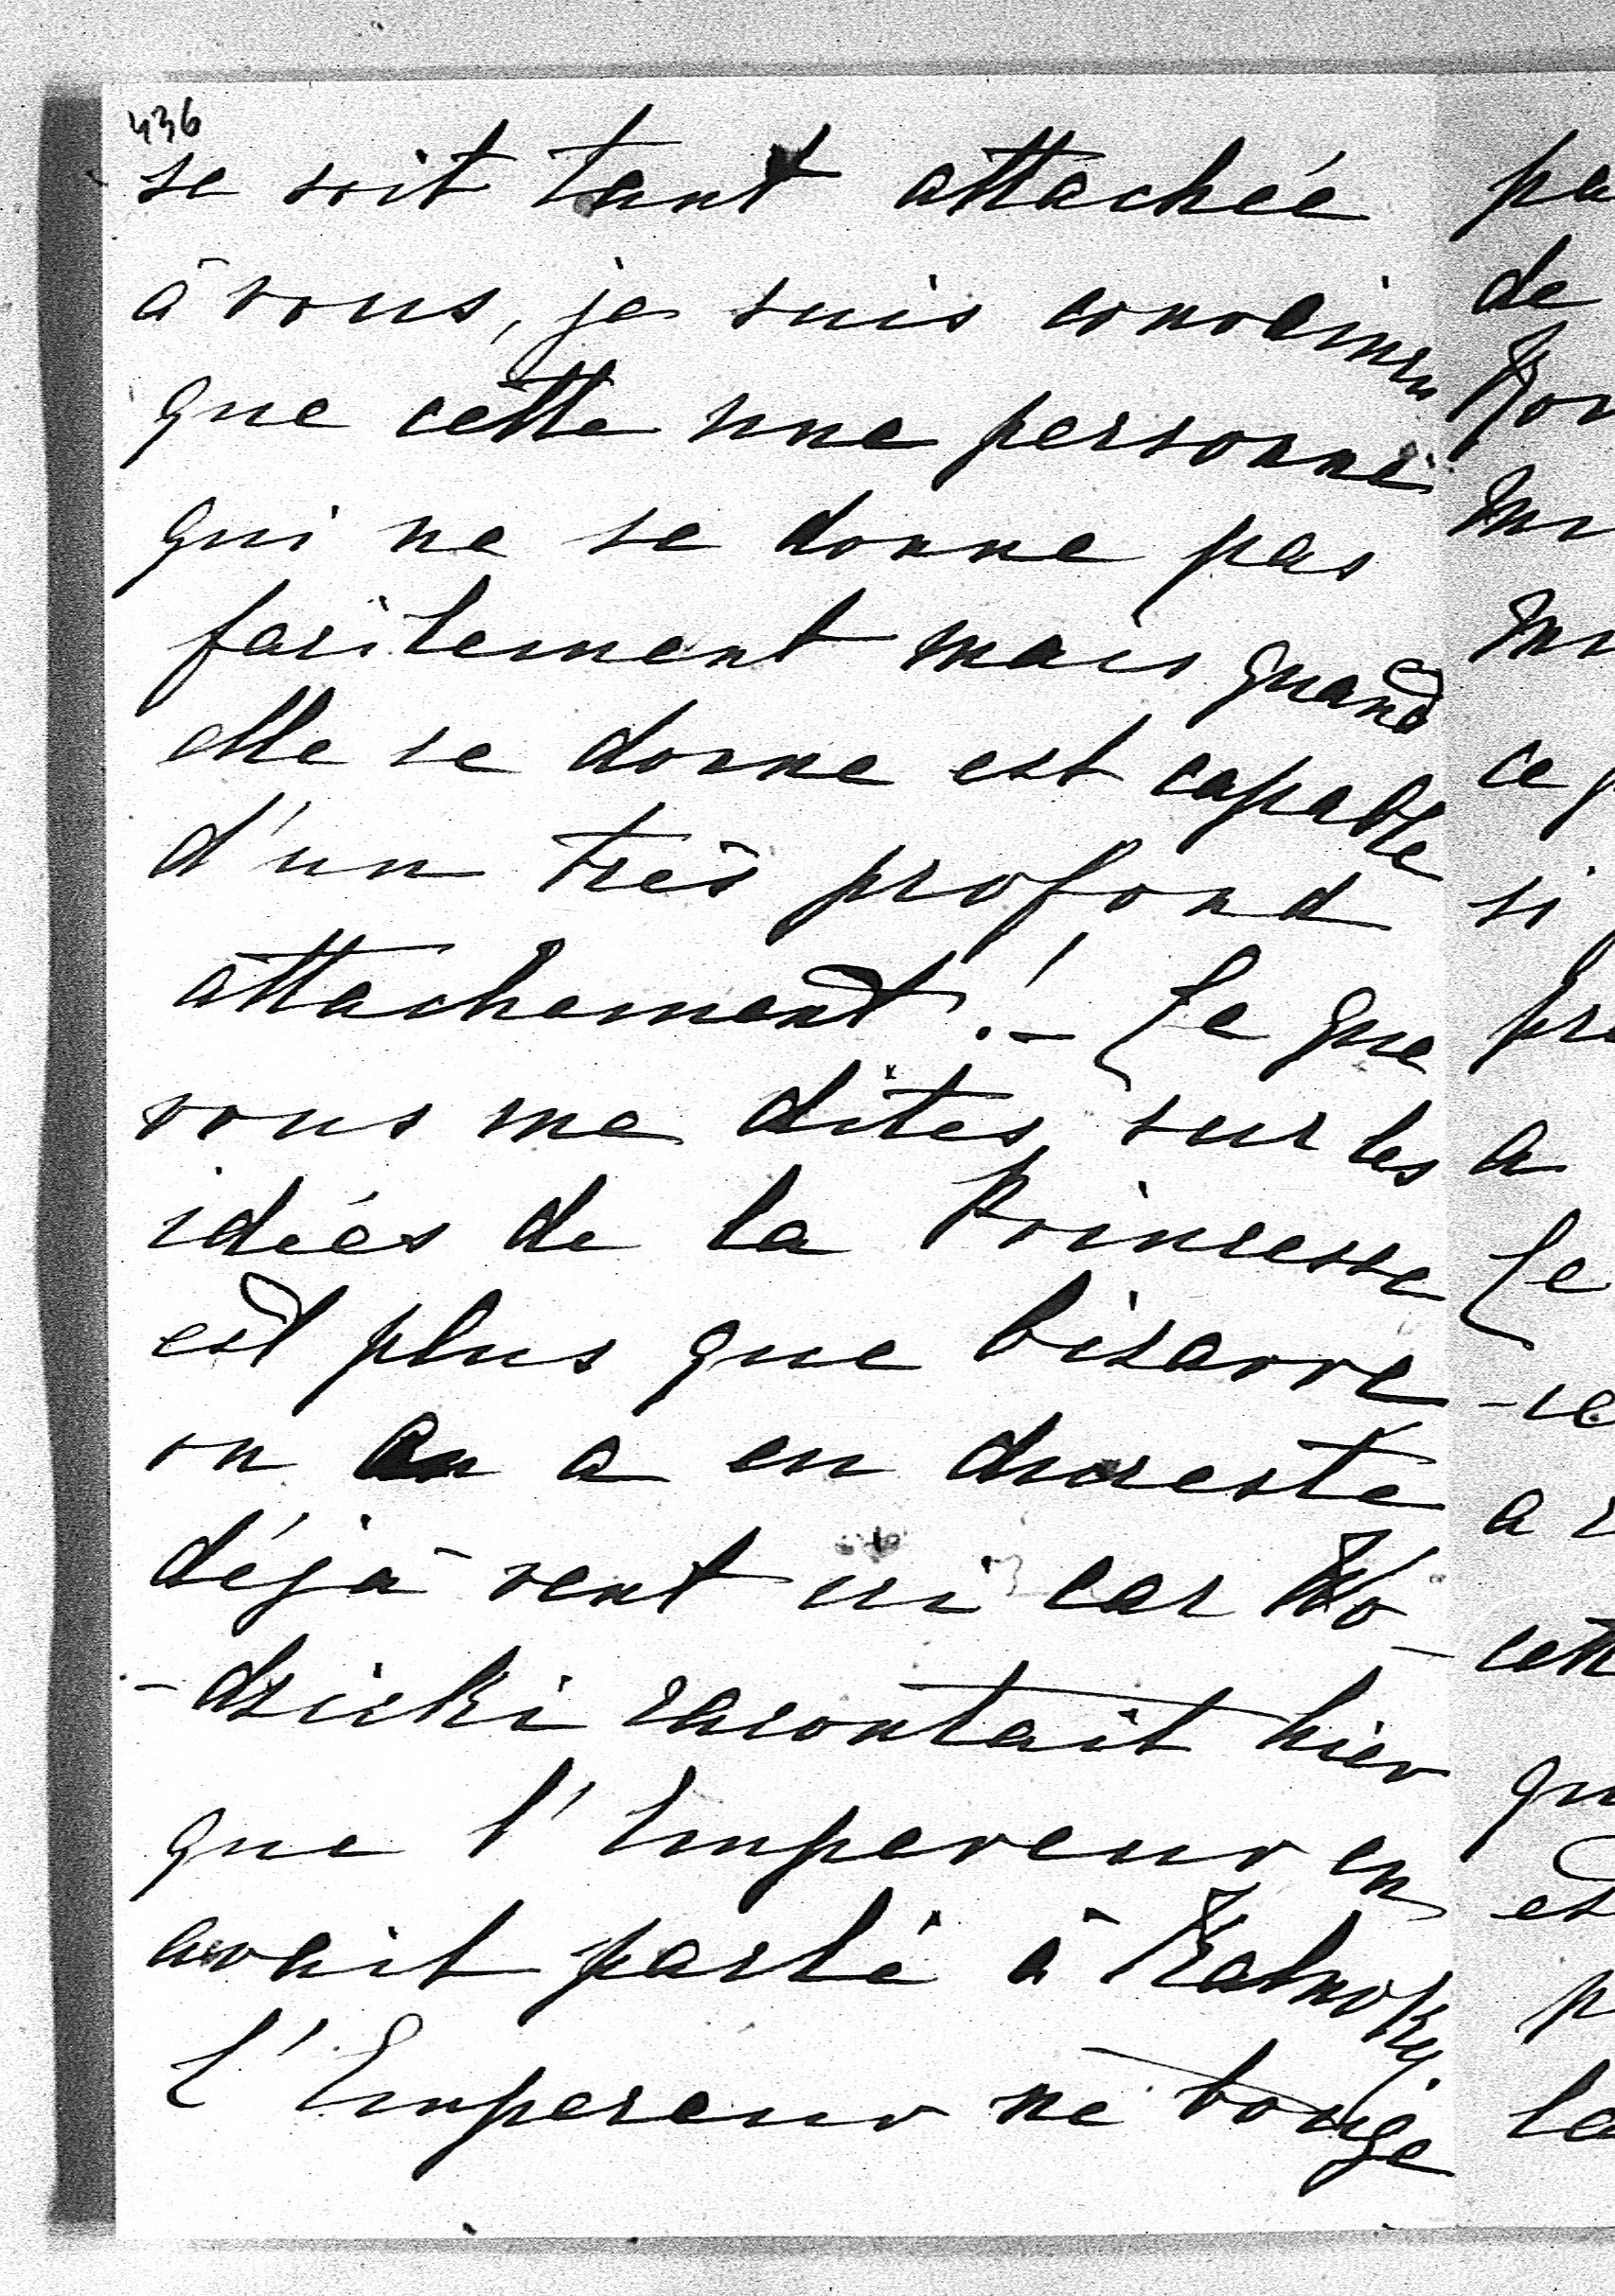 436
se soit tant attachée
à vous, je suis convaincu
que cette une personne
qui ne se donne pas
facilement mais quand
elle se donne est capable
d'un très profond
attachement! - Ce que
vous me dites sur les
idées de la Princesse
est plus que bizarre
on en a eu dureste
déjà vent ici car Wo-
-dzicki racontait hier
que l'Empereur en
avait parlé à Kalnoky.
L'Empereur ne bouge
pa
de
ce
si
a
Ce
cett
qu
la